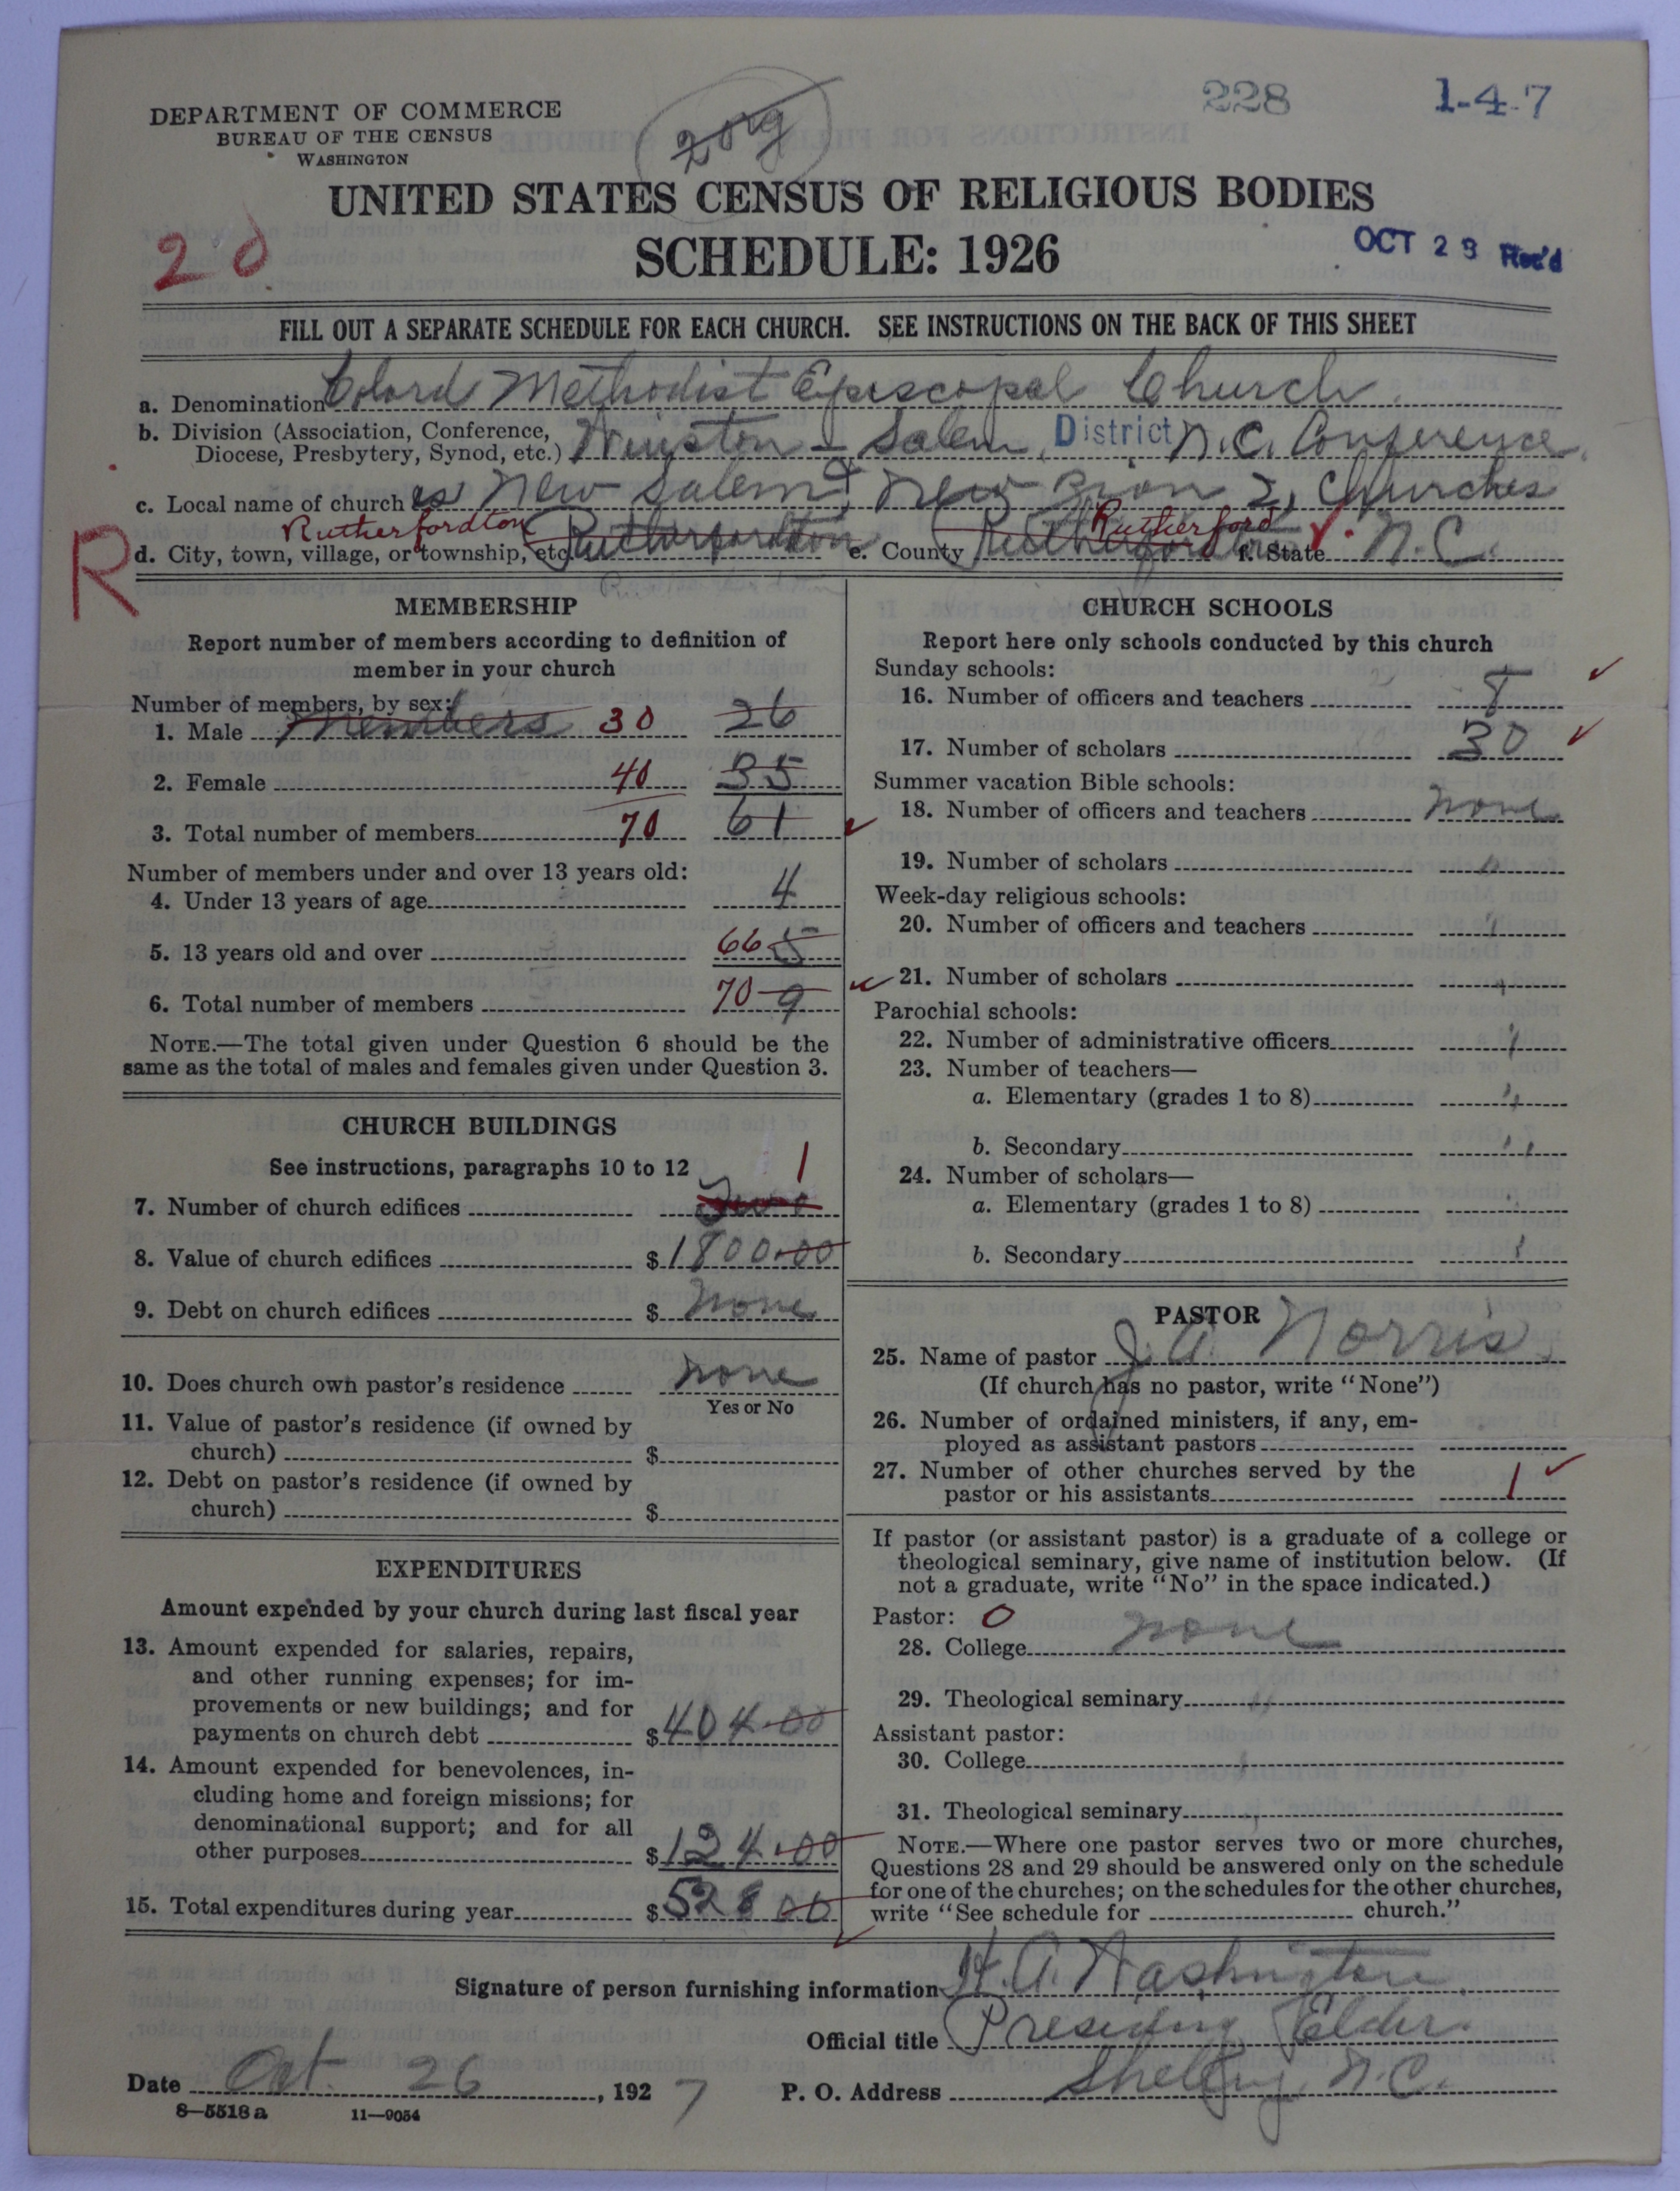 228 1-4-7
DEPARTMENT OF COMMERCE
BUREAU OF THE CENSUS
WASHINGTON
UNITED STATES CENSUS OF RELIGIOUS BODIES
SCHEDULE: 1926
20
OCT 28 Rec'd
FILL OUT A SEPARATE SCHEDULE FOR EACH CHURCH. SEE INSTRUCTIONS ON THE BACK OF THIS SHEET
a. Denomination Colord Methodist Episcopal Church
b. Division (Association, Conference, Diocese, Presbytery, Synod, etc.) Winston-Salem District N.C. Conference
c. Local name of church es New Salem & New Zion 2, Churches
R
d. City, town, village, or township, etc. Rutherfordton e. County Rutherford f. State N.C.
MEMBERSHIP
Report number of members according to definition of
member in your church
Number of members, by sex:
1. Male Members 30 26
2. Female 40 35
3. Total number of members 70 61
Number of members under and over 13 years old:
4. Under 13 years of age 4
5. 13 years old and over 66 5
6. Total number of members 70 9
NOTE.—The total given under Question 6 should be the
same as the total of males and females given under Question 3.
CHURCH BUILDINGS
See instructions, paragraphs 10 to 12
1
7. Number of church edifices
8. Value of church edifices $1800.00
9. Debt on church edifices $ none
10. Does church own pastor's residence none
Yes or No
11. Value of pastor's residence (if owned by
church) $
12. Debt on pastor's residence (if owned by
church) $
EXPENDITURES
Amount expended by your church during last fiscal year
13. Amount expended for salaries, repairs,
and other running expenses; for im-
provements or new buildings; and for
payments on church debt $404.00
14. Amount expended for benevolences, in-
cluding home and foreign missions; for
denominational support; and for all
other purposes $124.00
15. Total expenditures during year $528 00
CHURCH SCHOOLS
Report here only schools conducted by this church
Sunday schools:
16. Number of officers and teachers 8
17. Number of scholars 30
Summer vacation Bible schools:
18. Number of officers and teachers none
19. Number of scholars "
Week-day religious schools:
20. Number of officers and teachers "
21. Number of scholars "
Parochial schools:
22. Number of administrative officers "
23. Number of teachers—
a. Elementary (grades 1 to 8) "
b. Secondary "
24. Number of scholars—
a. Elementary (grades 1 to 8)
b. Secondary "
PASTOR
25. Name of pastor J. A. Norris
(If church has no pastor, write "None")
26. Number of ordained ministers, if any, em-
ployed as assistant pastors
27. Number of other churches served by the
pastor or his assistants 1
If pastor (or assistant pastor) is a graduate of a college or
theological seminary, give name of institution below. (If
not a graduate, write "No" in the space indicated.)
Pastor: 0
28. College none
29. Theological seminary "
Assistant pastor:
30. College
31. Theological seminary
NOTE.—Where one pastor serves two or more churches,
Questions 28 and 29 should be answered only on the schedule
for one of the churches; on the schedules for the other churches,
write "See schedule for church."
Signature of person furnishing information H. A. Washington
Official title Presiding Elder
Date Oct. 26, 1927 P. O. Address Shelby, N.C.
8—5518 a 11—9054